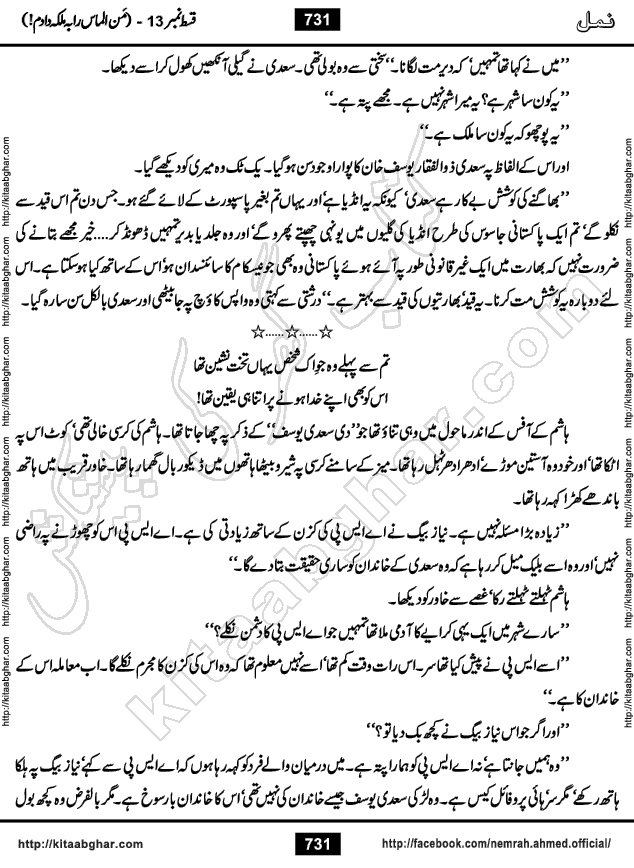 نمل
731
قسط نمبر 13 - (من الماس را بہ ملکہ دادم!)
’’میں نے کہا تھا تمہیں‘ کہ دیر مت لگانا۔‘‘ سختی سے وہ بولی تھی۔ سعدی نے گیلی آنکھیں کھول کر اسے دیکھا۔
’’یہ کون سا شہر ہے؟ یہ میرا شہر نہیں ہے۔ مجھے پتہ ہے۔‘‘
’’یہ پوچھو کہ یہ کون سا ملک ہے۔‘‘
اور اس کے الفاظ پہ سعدی ذوالفقار یوسف خان کا پورا وجود سن ہو گیا۔ یک ٹک وہ میری کو دیکھے گیا۔
’’بھاگنے کی کوشش بے کار ہے سعدی‘ کیونکہ یہ انڈیا ہے‘ اور یہاں تم بغیر پاسپورٹ کے لائے گئے ہو۔ جس دن تم اس قید سے
نکلو گے‘ تم ایک پاکستانی جاسوس کی طرح انڈیا کی گلیوں میں یونہی چھپتے پھرو گے‘ اور وہ جلد یا بدیر تمہیں ڈھونڈ کر.... خیر مجھے بتانے کی
ضرورت نہیں کہ بھارت میں ایک غیر قانونی طور پہ آئے ہوئے پاکستانی وہ بھی جو نیسکام کا سائنسدان ہو‘ اس کے ساتھ کیا ہو سکتا ہے۔ اس
لئے دوبارہ یہ کوشش مت کرنا۔ یہ قید‘ بھارتیوں کی قید سے بہتر ہے۔‘‘ درشتی سے کہتی وہ واپس کاؤچ پہ جا بیٹھی اور سعدی بالکل سن سا رہ گیا۔
☆......☆......☆
تم سے پہلے وہ جو اک شخص یہاں تخت نشین تھا
اس کو بھی اپنے خدا ہونے پر اتنا ہی یقین تھا!
ہاشم کے آفس کے اندر ماحول میں وہی تناؤ تھا جو ’’دی سعدی یوسف‘‘ کے ذکر پہ چھا جاتا تھا۔ ہاشم کی کرسی خالی تھی‘ کوٹ اس پہ
اٹکا تھا‘ اور خود وہ آستین موڑے‘ ادھر ادھر ٹہل رہا تھا۔ میز کے سامنے کرسی پہ شیرو بیٹھا ہاتھوں میں ڈیکور بال گھما رہا تھا۔ خاور قریب میں ہاتھ
باندھے کھڑا کہہ رہا تھا۔
’’زیادہ بڑا مسئلہ نہیں ہے۔ نیاز بیگ نے اے ایس پی کی کزن کے ساتھ زیادتی کی ہے۔ اے ایس پی اس کو چھوڑنے پہ راضی
نہیں‘ اور وہ اسے بلیک میل کر رہا ہے کہ وہ سعدی کے خاندان کو ساری حقیقت بتا دے گا۔‘‘
ہاشم ٹہلتے ٹہلتے رکا‘ غصے سے خاور کو دیکھا۔
’’سارے شہر میں ایک یہی کرایے کا آدمی ملا تھا تمہیں جو اے ایس پی کا دشمن نکلے؟‘‘
’’اسے ایس پی نے پیش کیا تھا سر۔ اس رات وقت کم تھا‘ اسے نہیں معلوم تھا کہ وہ اس کی کزن کا مجرم نکلے گا۔ اب معاملہ اس کے
خاندان کا ہے۔‘‘
’’اور اگر جو اس نیاز بیگ نے کچھ بک دیا تو؟‘‘
’’وہ ہمیں جانتا ہے‘ نہ اے ایس پی کو ہمارا پتہ ہے۔ میں درمیان والے فرد کو کہہ رہا ہوں کہ اے ایس پی سے کہے‘ نیاز بیگ پہ ہلکا
ہاتھ رکھے‘ مگر سر‘ ہائی پروفائل کیس ہے۔ وہ لڑکی سعدی یوسف جیسے خاندان کی نہیں تھی‘ اس کا خاندان با رسوخ ہے۔ مگر بالفرض وہ کچھ بول
http://kitaabghar.com
731
http://facebook.com/nemrah.ahmed.official/
http://kitaabghar.com
http://kitaabghar.com
http://kitaabghar.com
http://kitaabghar.com
http://kitaabghar.com
http://kitaabghar.com
کتاب گھر کی پیشکش
kitaabghar.com